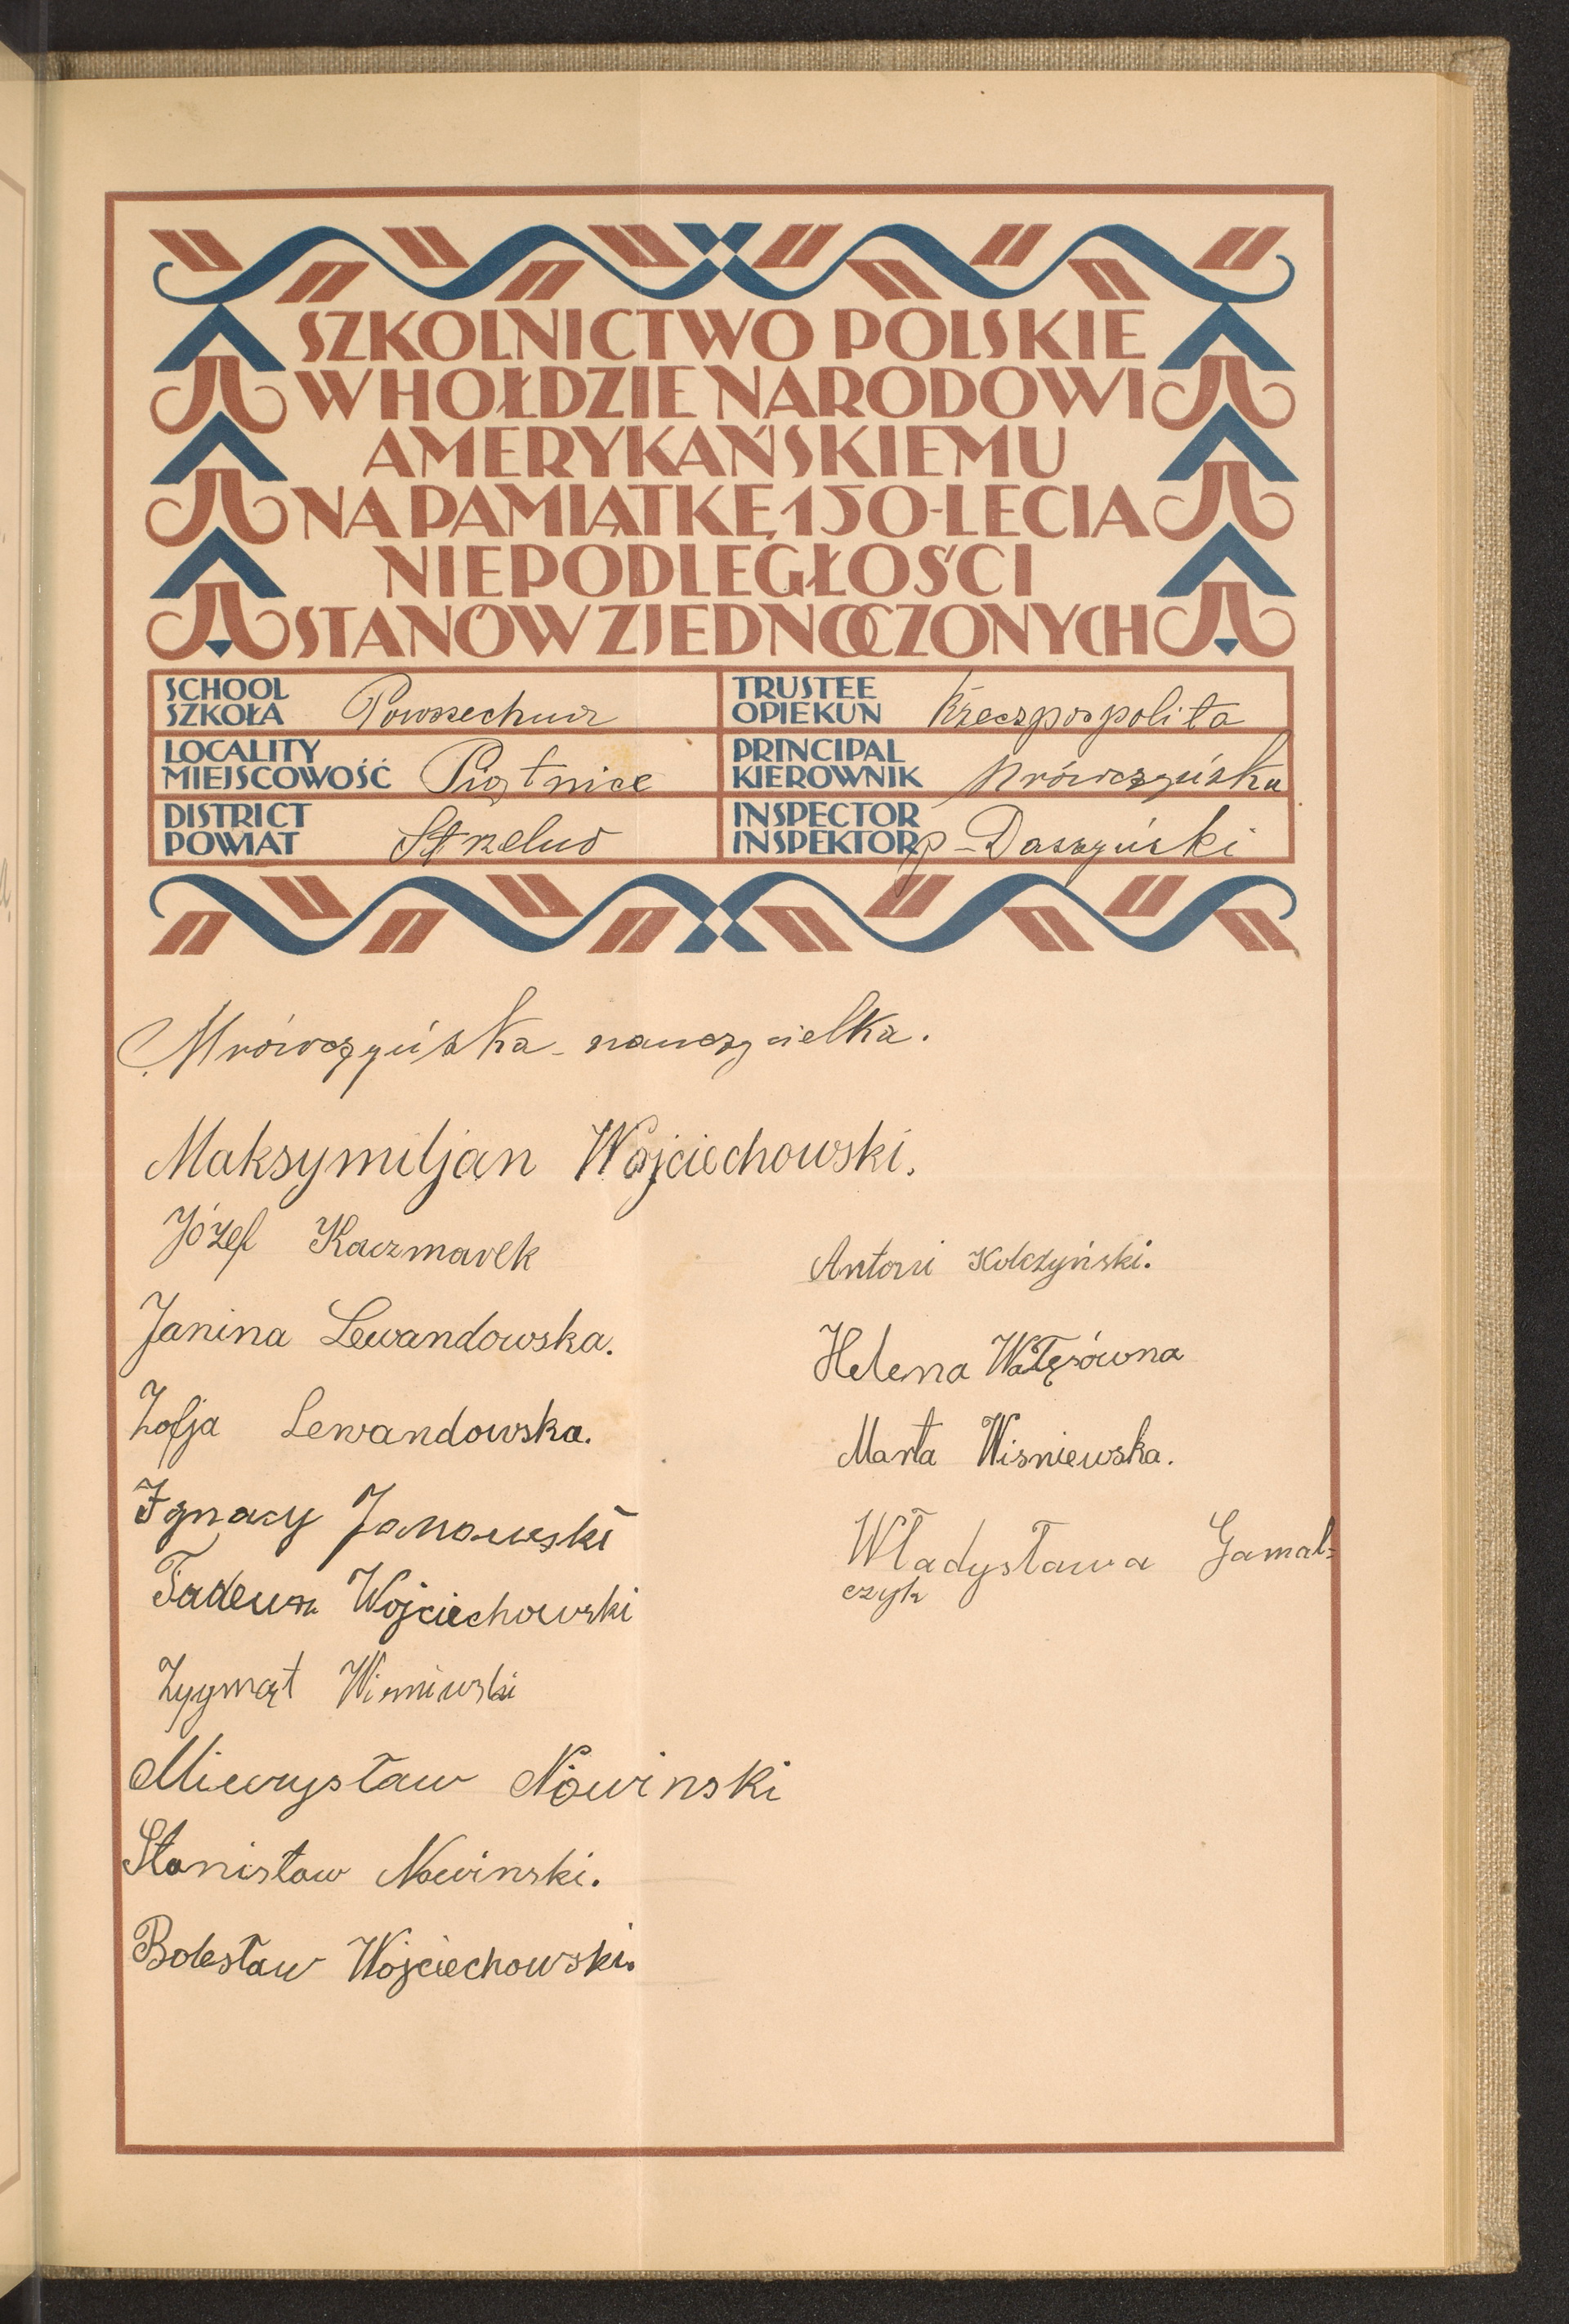 SZKOLNICTWO POLSKIE
W HOŁDZIE NARODOWI
AMERYKAŃSKIEMU
NA PAMIĄTKĘ 150-LECIA
NIEPODLEGŁOŚCI
STANÓW ZJEDNOCZONYCH
SCHOOL
SZKOŁA Powszechna
TRUSTEE
OPIEKUN Rzeczpospolita
LOCALITY
MIEJSCOWOŚĆ Piątnice
PRINCIPAL
KIEROWNIK Mrówczyńska
DISTRICT
POWIAT Strzelno
INSPECTOR
INSPEKTOR p-Daszyński
Mrówczyńska - nauczycielka.
Maksymiljan Wojciechowski.
Józef Kaczmarek
Janina Lewandowska.
Zofja Lewandowska.
Ignacy Janowski
Tadeusz Wojciechowski
Zygmąt Wisniewski
Mieczysław Nowinski
Stanisław Nowinski.
Bolesław Wojciechowski.
Antoni Kolczyński.
Helena Wałęsówna
Marta Wisniewska.
Władysława Gamal=
czyk